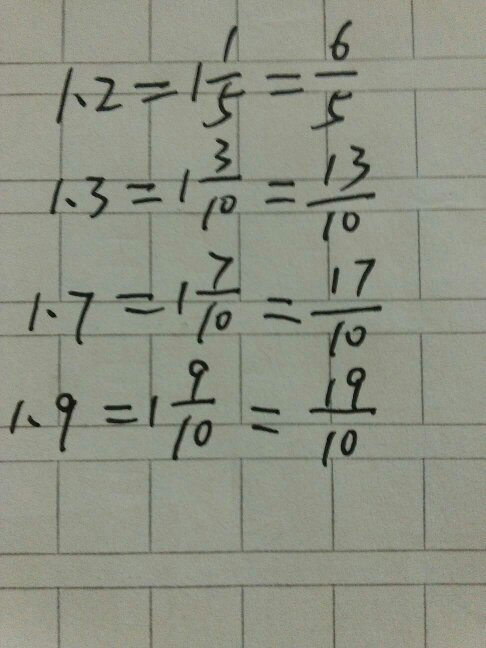 1.2 = 1 1/5 = 6/5
1.3 = 1 3/10 = 13/10
1.7 = 1 7/10 = 17/10
1.9 = 1 9/10 = 19/10